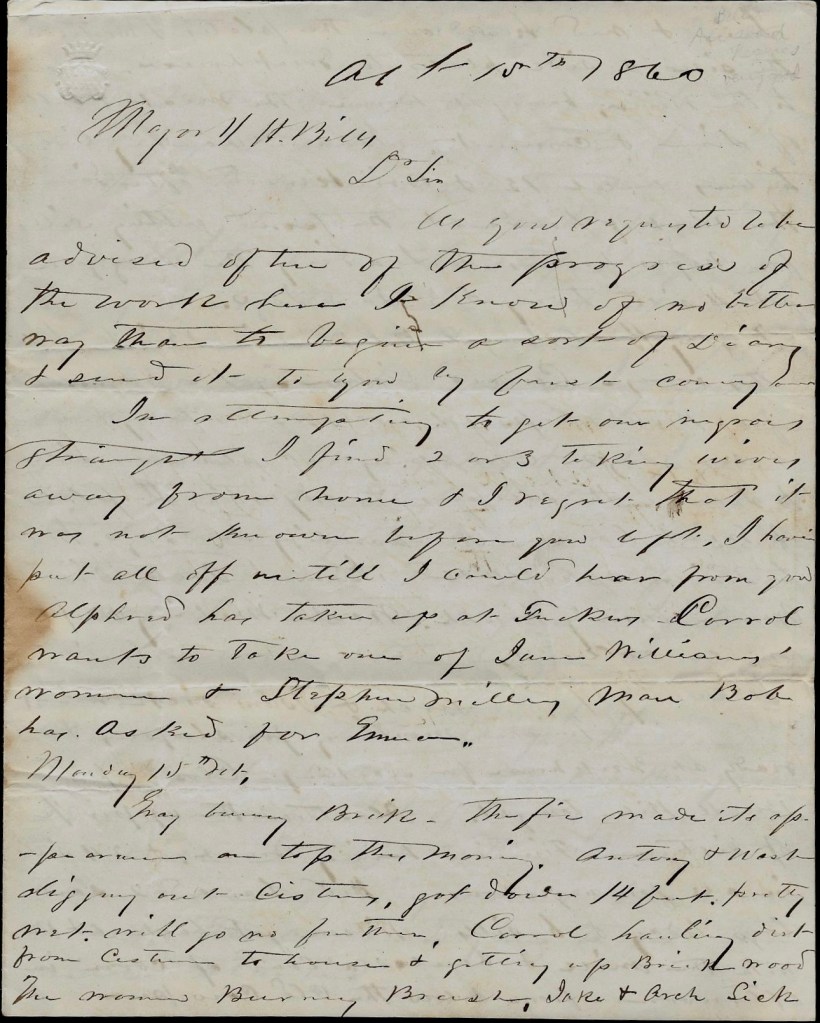 Oct 15th 1860
Major J H. Bills
Dr Sir
As you requested to be
advised often of the progress of
the work here I know of no better
way than to begin a sort of Diary
& send it to you by first conveyance
In attempting to get our negroes
straight I find 2 or 3 taking wives
away from home & I regret that it
was not known before you left, I have
put all off untill I could hear from you
Alphred has taken up at Tuckers Corrol
wants to take one of Jane Williams'
women & Stephen Milley Man Bob
has Asked for Emma
Monday 15th Oct,
Gray burning Brick - The fire made its ap-
-pearance on top this Morning. Antony & Wash
digging out Cistern, got down 14 feet. pretty
wet. will go no further, Corrol hauling dirt
from Cistern to house & getting up Brick wood
The women Burning Brush, Jake & Arch Sick